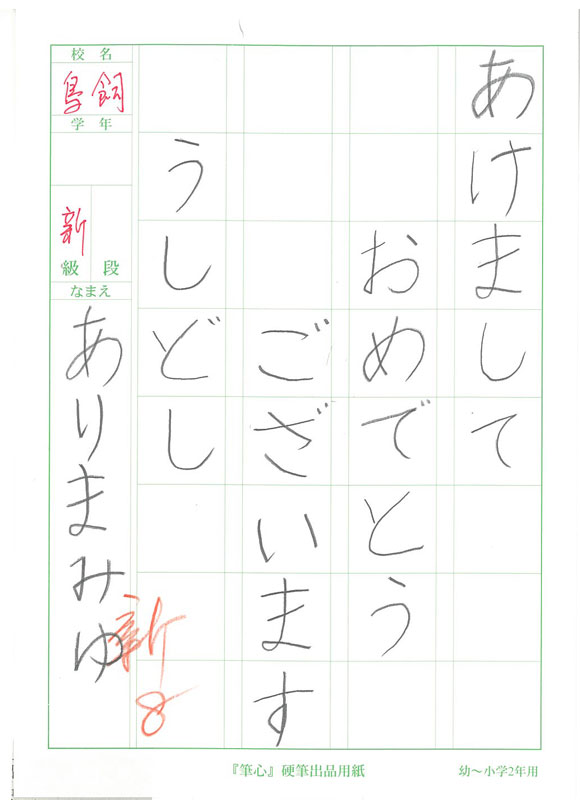 あけまして
おめでとう
ございます
うしどし
校名
鳥飼
学年
新
級 段
なまえ
ありまみゆ
新
8
『筆心』硬筆出品用紙
幼〜小学2年用